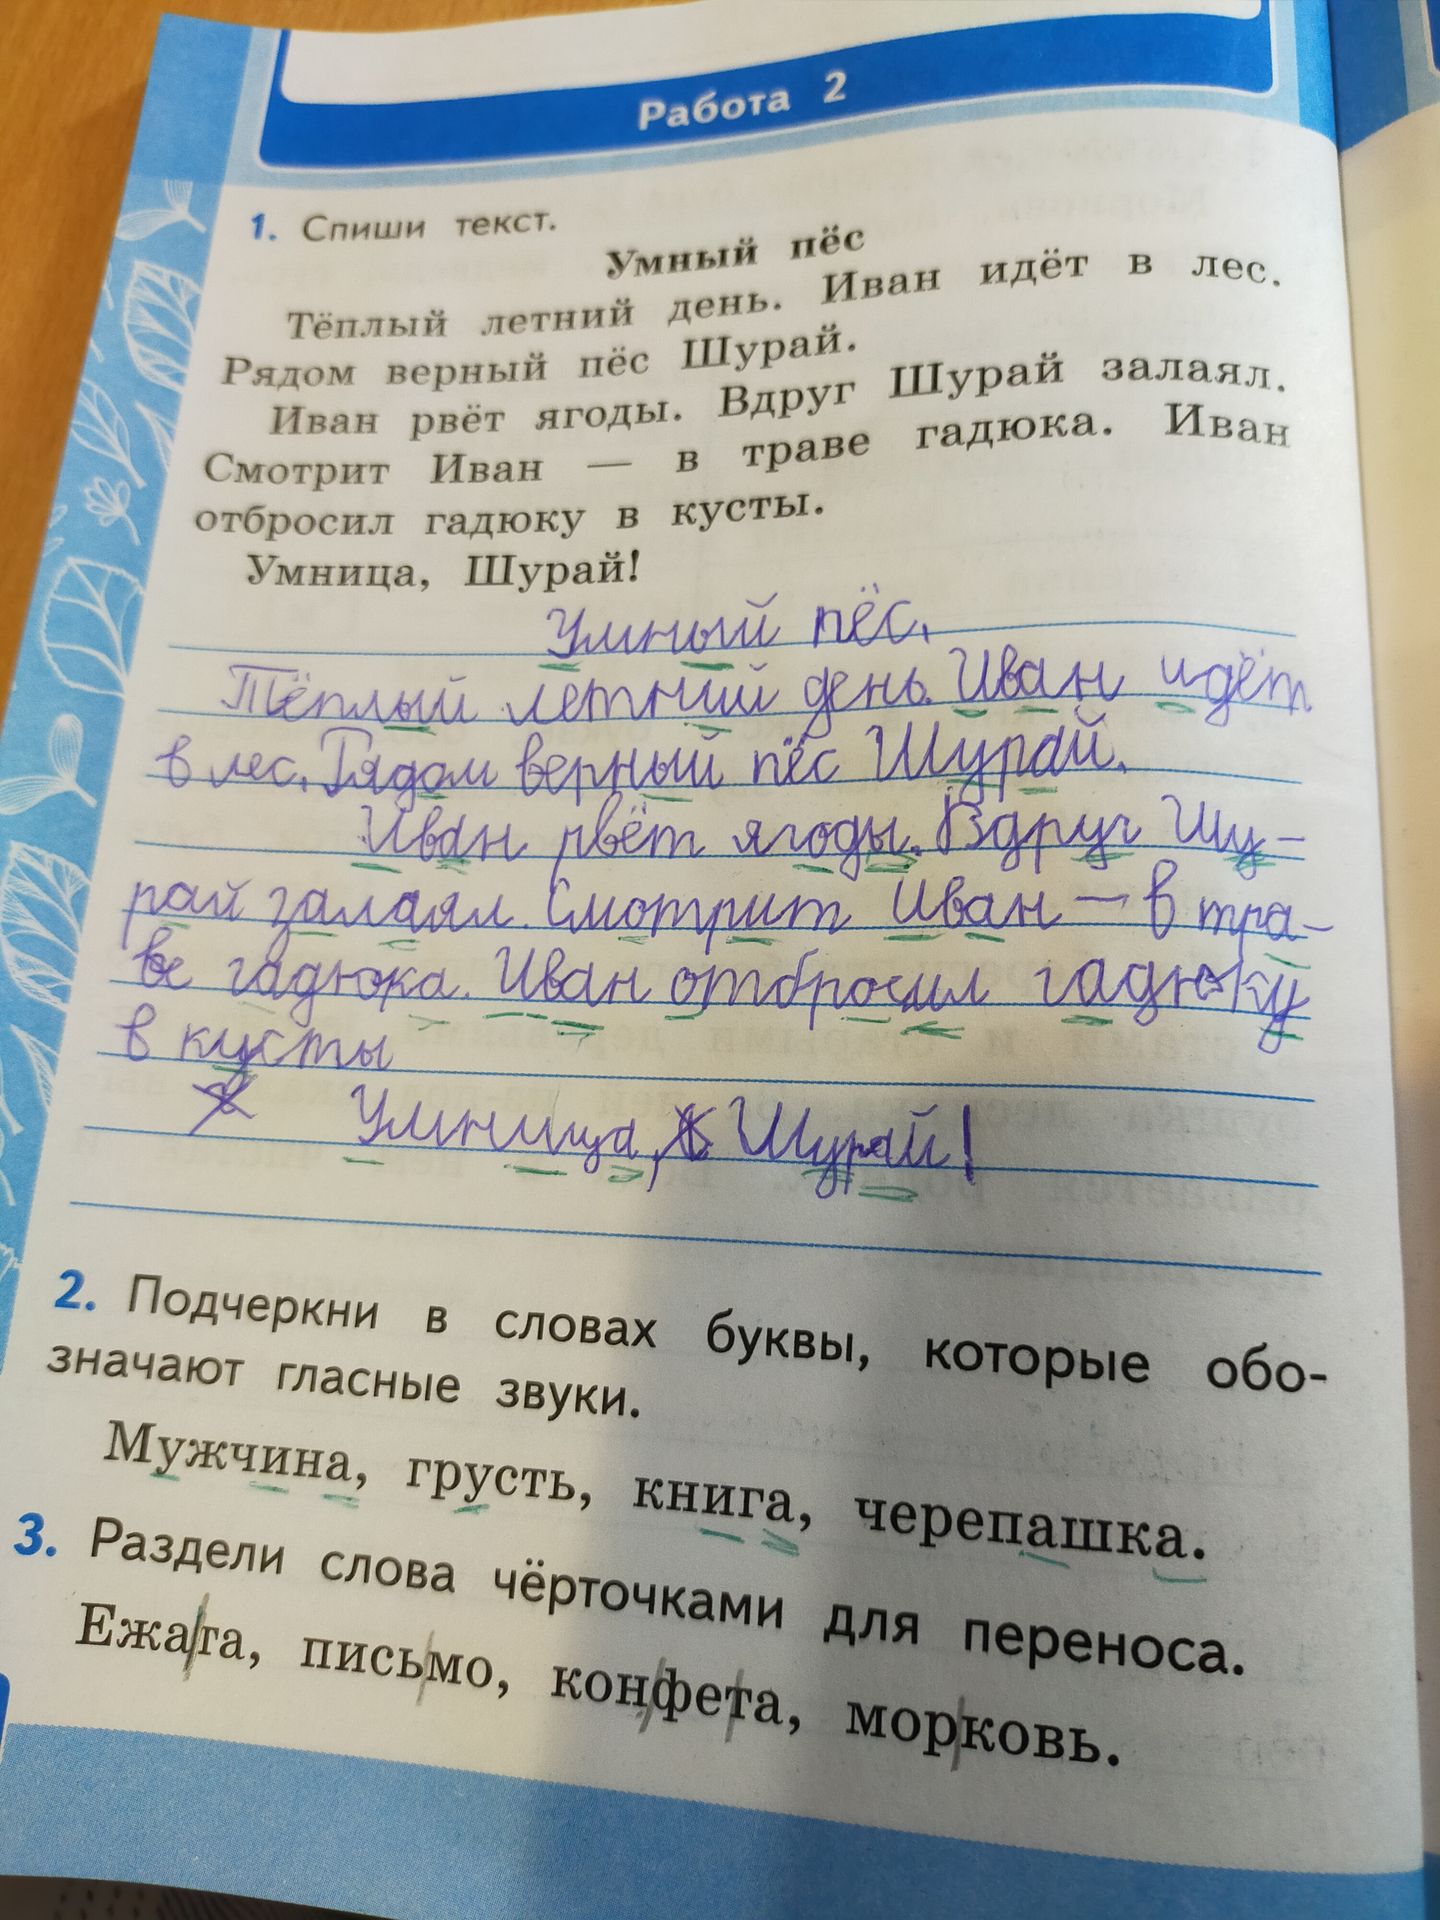 Работа 2
1. Спиши текст.
Умный пёс
Тёплый летний день. Иван идёт в лес.
Рядом верный пёс Шурай.
Иван рвёт ягоды. Вдруг Шурай залаял.
Смотрит Иван — в траве гадюка. Иван
отбросил гадюку в кусты.
Умница, Шурай!
Умный пёс.
Тёплый летний день. Иван идёт
в лес. Рядом верный пёс Шурай.
Иван рвёт ягоды. Вдруг Шу-
рай залаял. Смотрит Иван — в тра-
ве гадюка. Иван отбросил гадюку
в кусты
Умница, Шурай!
2. Подчеркни в словах буквы, которые обо-
значают гласные звуки.
Мужчина, грусть, книга, черепашка.
3. Раздели слова чёрточками для переноса.
Ежа/та, пись/мо, кон/фе/та, мор/ковь.